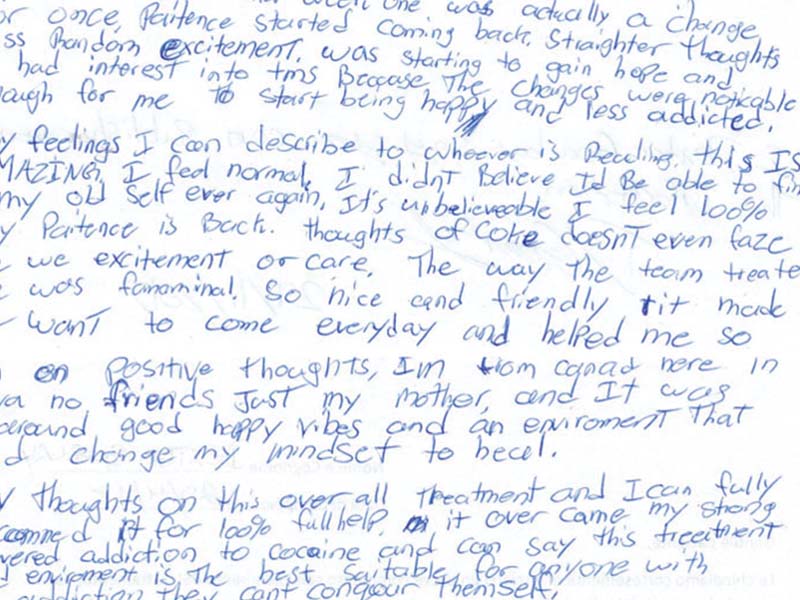 one was actually a change
or once, Paitence started coming back. Straighter thoughts
ss Random excitement. was starting to gain hope and
had interest into tms Because The changes were noticable
ough for me to start being happy and less addicted.
y feelings I can describe to whoever is Reading, this IS
MAZING, I feel normal, I didnT Believe Id Be able to fin
my old self ever again, It's unbelieveable I feel 100%
y Paitence is Back. thoughts of Coke doesnT even faze
e we excitement or care. The way The team treate
e was fanaminal. So nice and friendly it made
wanT to come everyday and helped me so
on positive thoughts, Im from canad here in
va no friends Just my mother, and IT was
around good happy vibes and an enviromenT ThaT
d change my mindset to heal.
y thoughts on this over all Treatment and I can fully
commed it for 100% full help. it over came my strong
wered addiction to cocaine and can say this treetment
d enviroment is The best suitable for anyone with
addiction they cant conquour Themself.